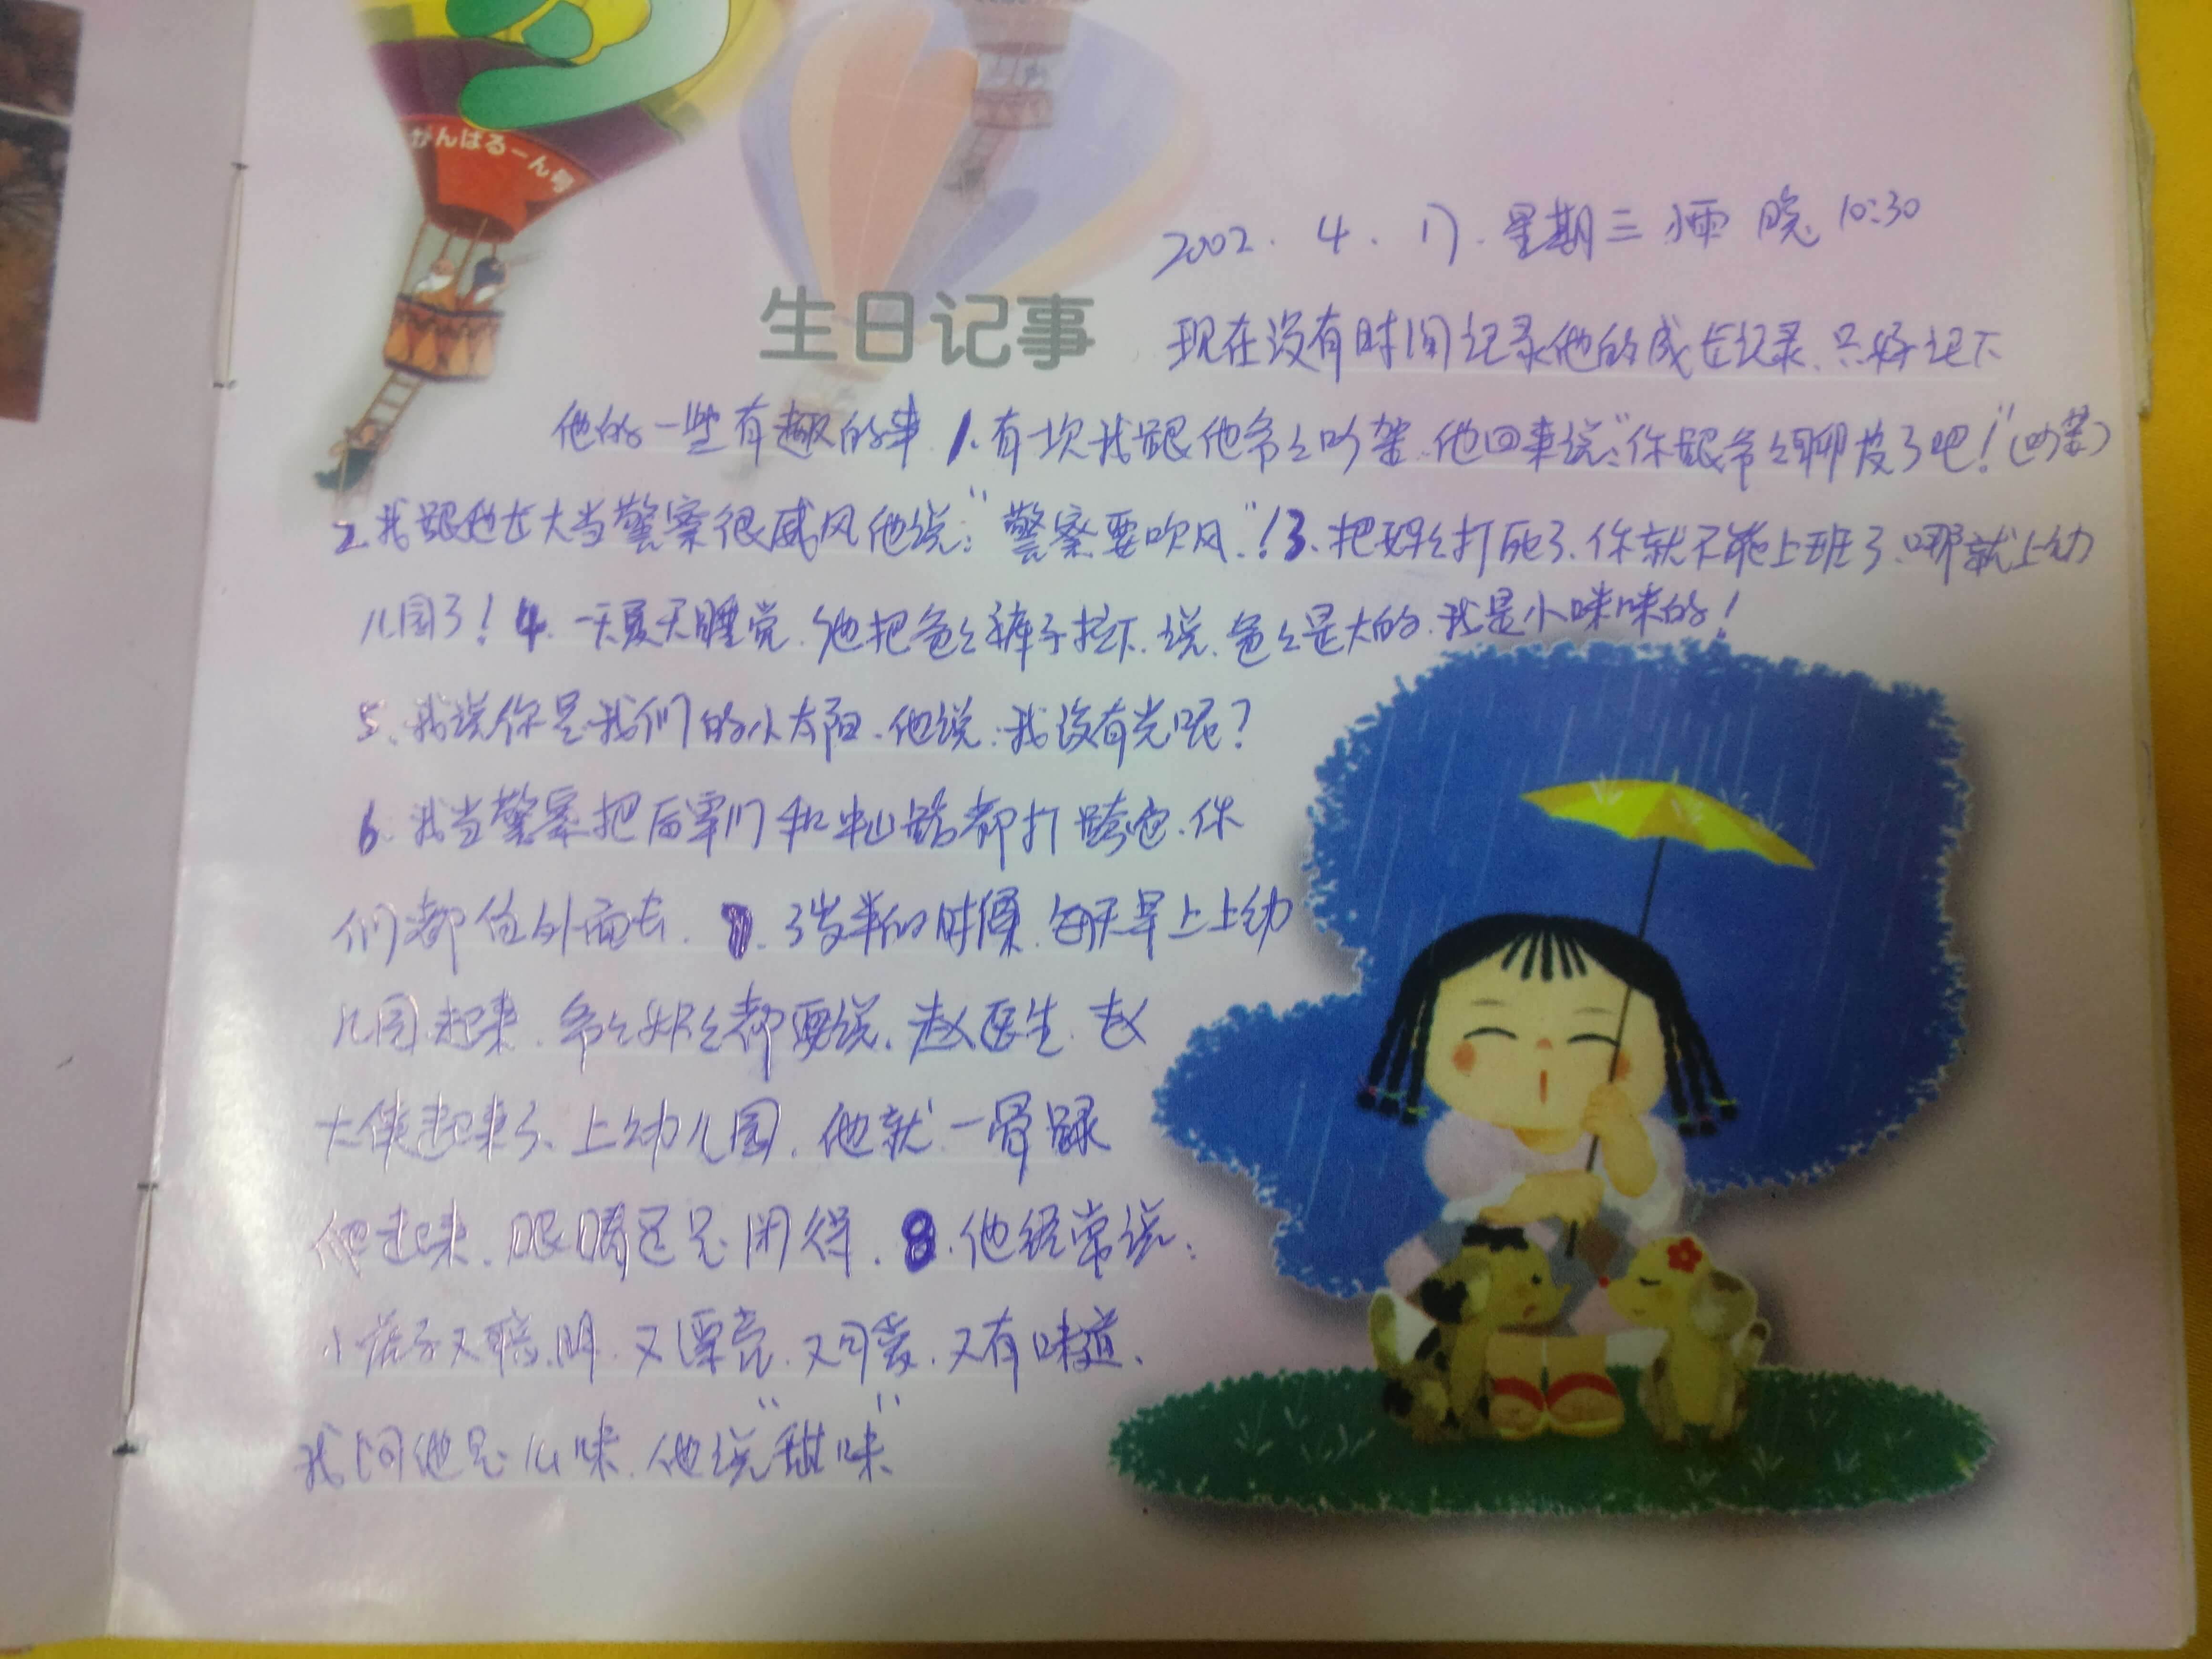 がんばるーん号
2002.4.17.星期三 小雨 晚10:30
生日记事
现在没有时间记录他的成长记录.只好记下
他的一些有趣的事.1.有一次我跟他爷々吵架.他回来说:"你跟爷々聊皮了吧!"(吵架)
2.我跟他长大当警察很威风他说:"警察要吹风"!3、把妈々打死了.你就不能上班了.哪就上幼
儿园了!4.一天夏天睡觉.他把爸々裤子拉下.说.爸々是大的.我是小咪咪的!
5、我说你是我们的小太阳.他说:我没有光呢?
6.我当警察把后宰门和中山路都打垮它.你
们都住外面去.7.3岁半的时候.每天早上上幼
儿园起来.爷々奶々都要说.赵医生.赵
大侠起来了、上幼儿园.他就一骨碌
爬起来.眼睛还是闭得.8.他经常说:
小孩子又聪明.又漂亮.又可爱.又有味道、
我问他是么味.他说"甜味"